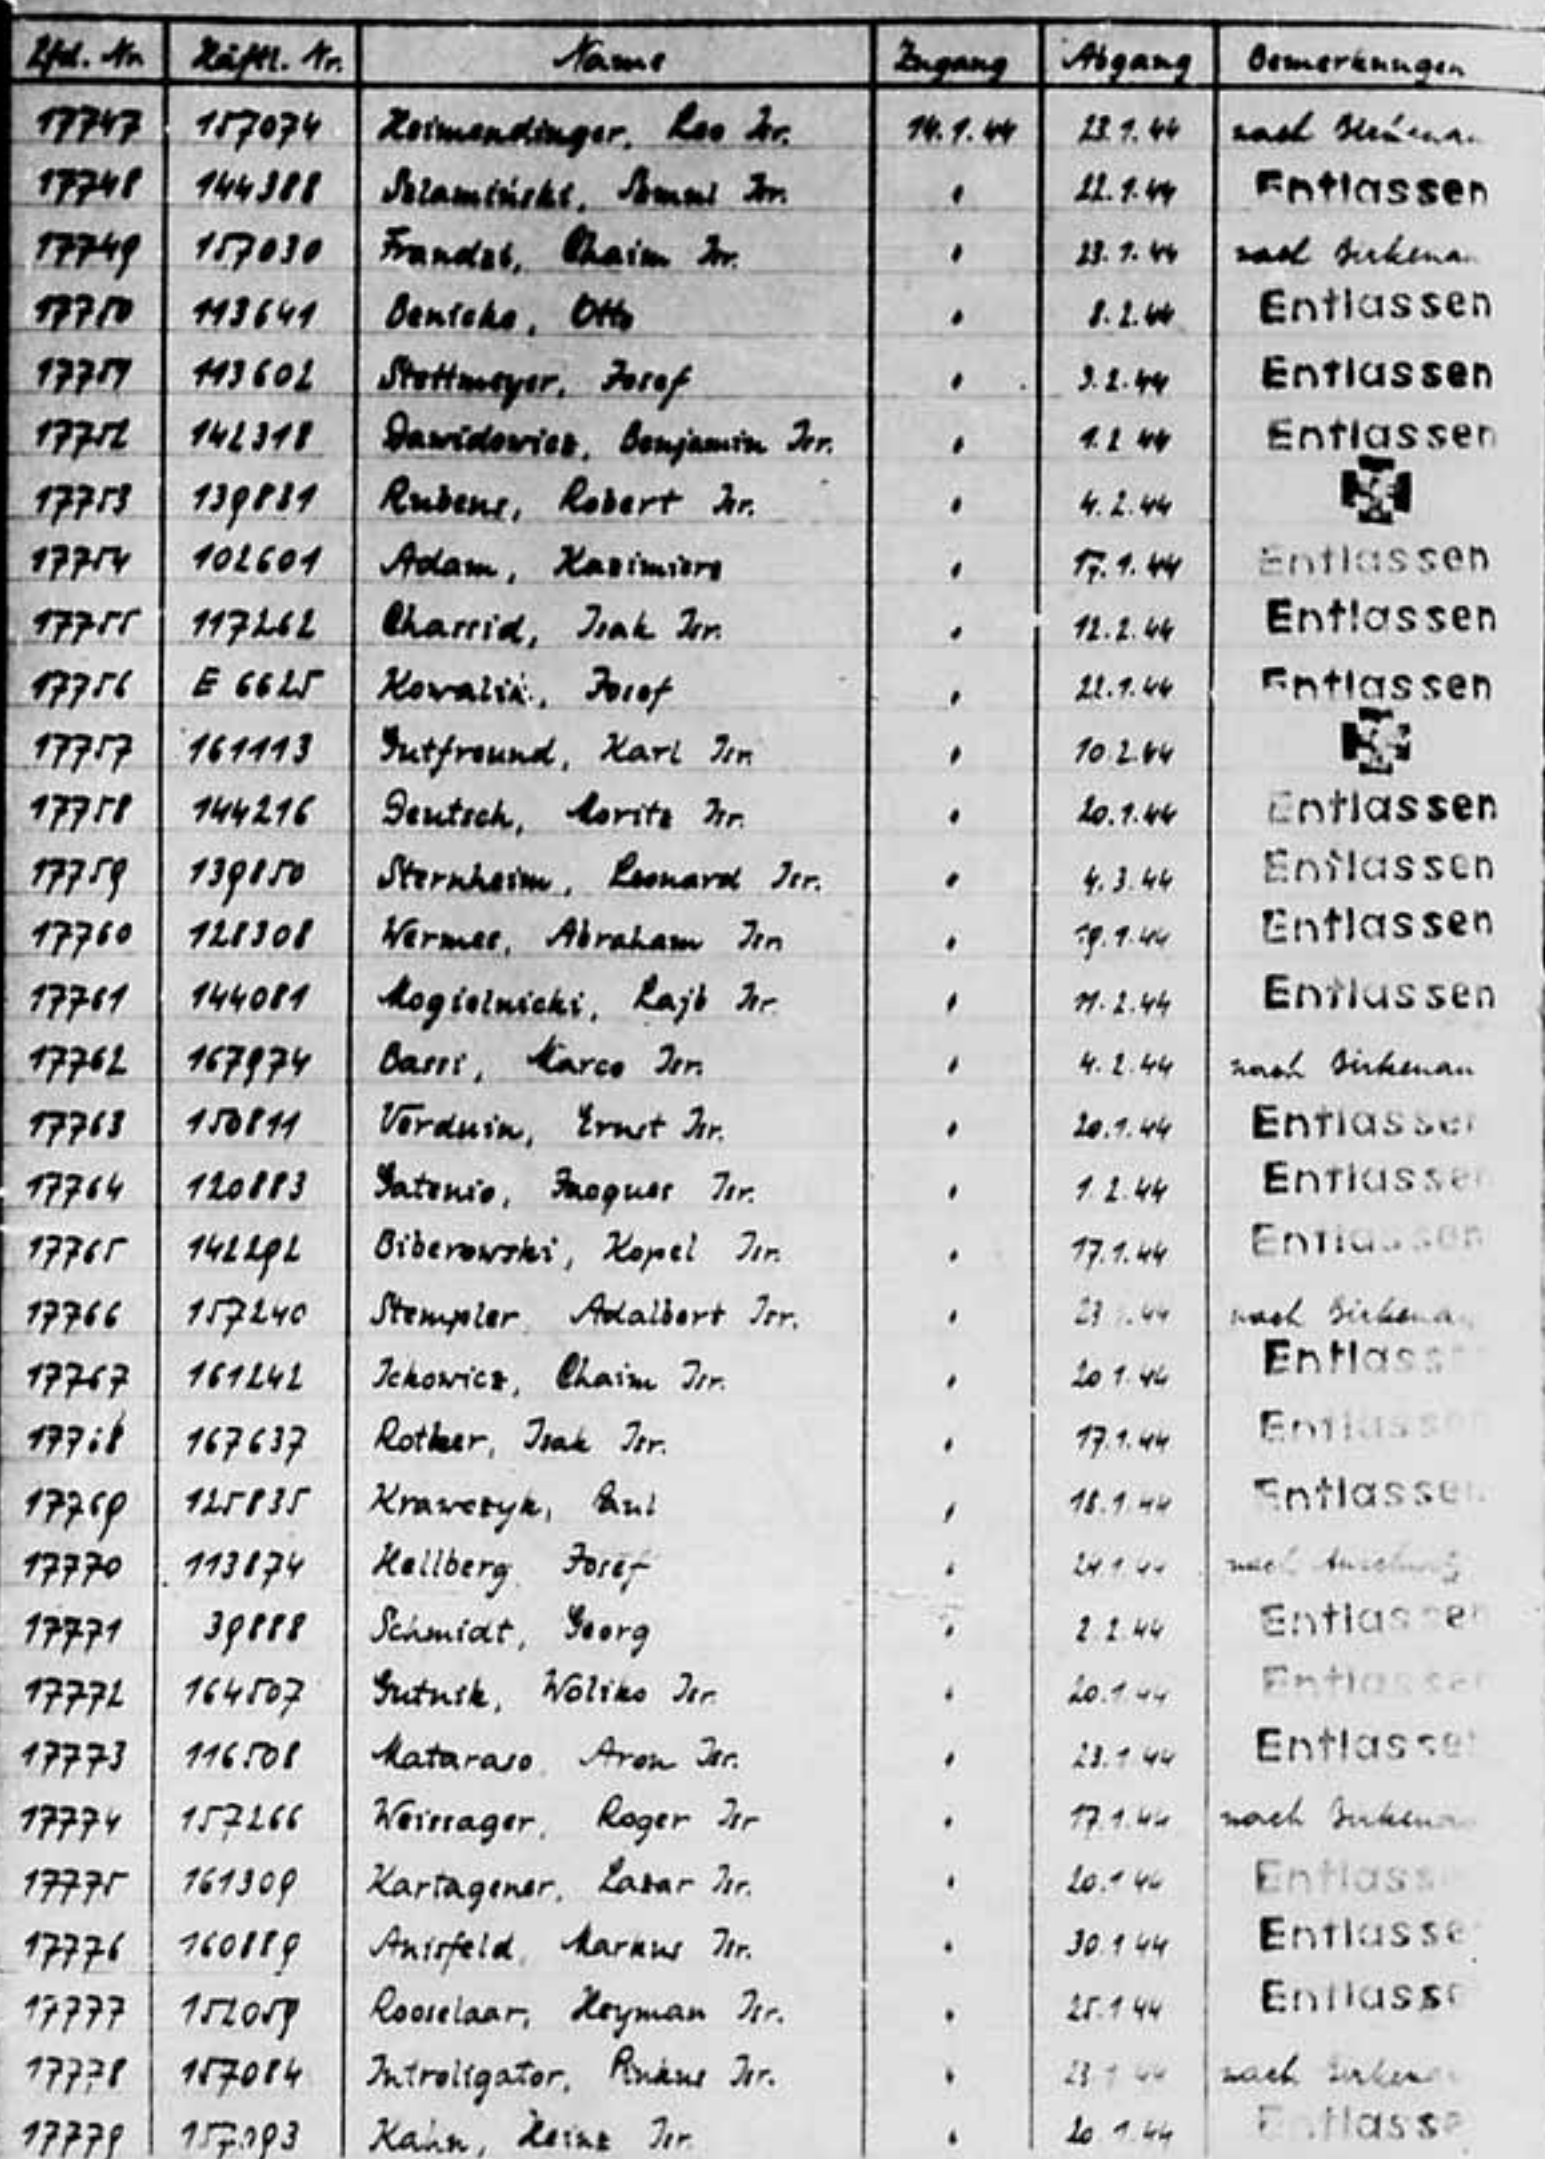 Lfd. Nr. Häftl. Nr. Name Zugang Abgang Bemerkungen
17747 157074 Heimendinger, Leo Isr. 14.1.44 23.1.44 nach
17748 144388 Szlamiński, Szmul Isr. " 22.1.44 Entlassen
17749 157030 Chaim Isr. " 23.1.44 nach Birkenau
17750 113641 Benicke, Otto " 8.2.44 Entlassen
17751 113602 Stottmeyer, Josef " 3.2.44 Entlassen
17752 142318 Dawidowicz, Benjamin Isr. " 1.2.44 Entlassen
17753 139831 Rubens, Robert Isr. " 4.2.44
17754 102601 Adam, Kazimierz " 17.1.44 Entlassen
17755 117262 Chassid, Isak Isr. " 12.2.44 Entlassen
17756 E 6625 Kowalik, Josef " 22.1.44 Entlassen
17757 161113 Gutfreund, Karl Isr. " 10.2.44
17758 144216 Deutsch, Moritz Isr. " 20.1.44 Entlassen
17759 139850 Sternheim, Leonard Isr. " 4.3.44 Entlassen
17760 128308 Wermes, Abraham Isr. " 19.1.44 Entlassen
17761 144081 Mogielnicki, Lajb Isr. " 11.2.44 Entlassen
17762 167974 Bassi, Marco Isr. " 4.2.44 nach Birkenau
17763 150811 Verduin, Ernst Isr. " 20.1.44 Entlassen
17764 120883 Gatenio, Jacques Isr. " 1.2.44 Entlassen
17765 142292 Biberowski, Kopel Isr. " 17.1.44 Entlassen
17766 157240 Stempler, Adalbert Isr. " nach Birkenau
17767 161242 Ickowicz, Chaim Isr. " 20.1.44 Entlassen
17768 167637 Isak Isr. " 17.1.44 Entlassen
17769 125835 Krawczyk, Paul " 18.1.44 Entlassen
17770 113874 Hellberg, Josef " 24.1.44 nach Auschwitz
17771 39888 Schmidt, Georg " 2.2.44 Entlassen
17772 164507 Gutnik, Woliko Isr. " 20.1.44 Entlassen
17773 116508 Mataraso, Aron Isr. " 23.1.44 Entlassen
17774 157266 Weissager, Roger Isr. " 17.1.44 nach Birkenau
17775 161309 Kartagener, Lazar Isr. " 20.1.44 Entlassen
17776 160889 Anisfeld, Markus Isr. " 30.1.44 Entlassen
17777 152059 Rooselaar, Heyman Isr. " 25.1.44 Entlassen
17778 157084 Introligator, Pinkus Isr. " 23.1.44 nach Birkenau
17779 Kahn, Heinz Isr. " 20.1.44 Entlassen